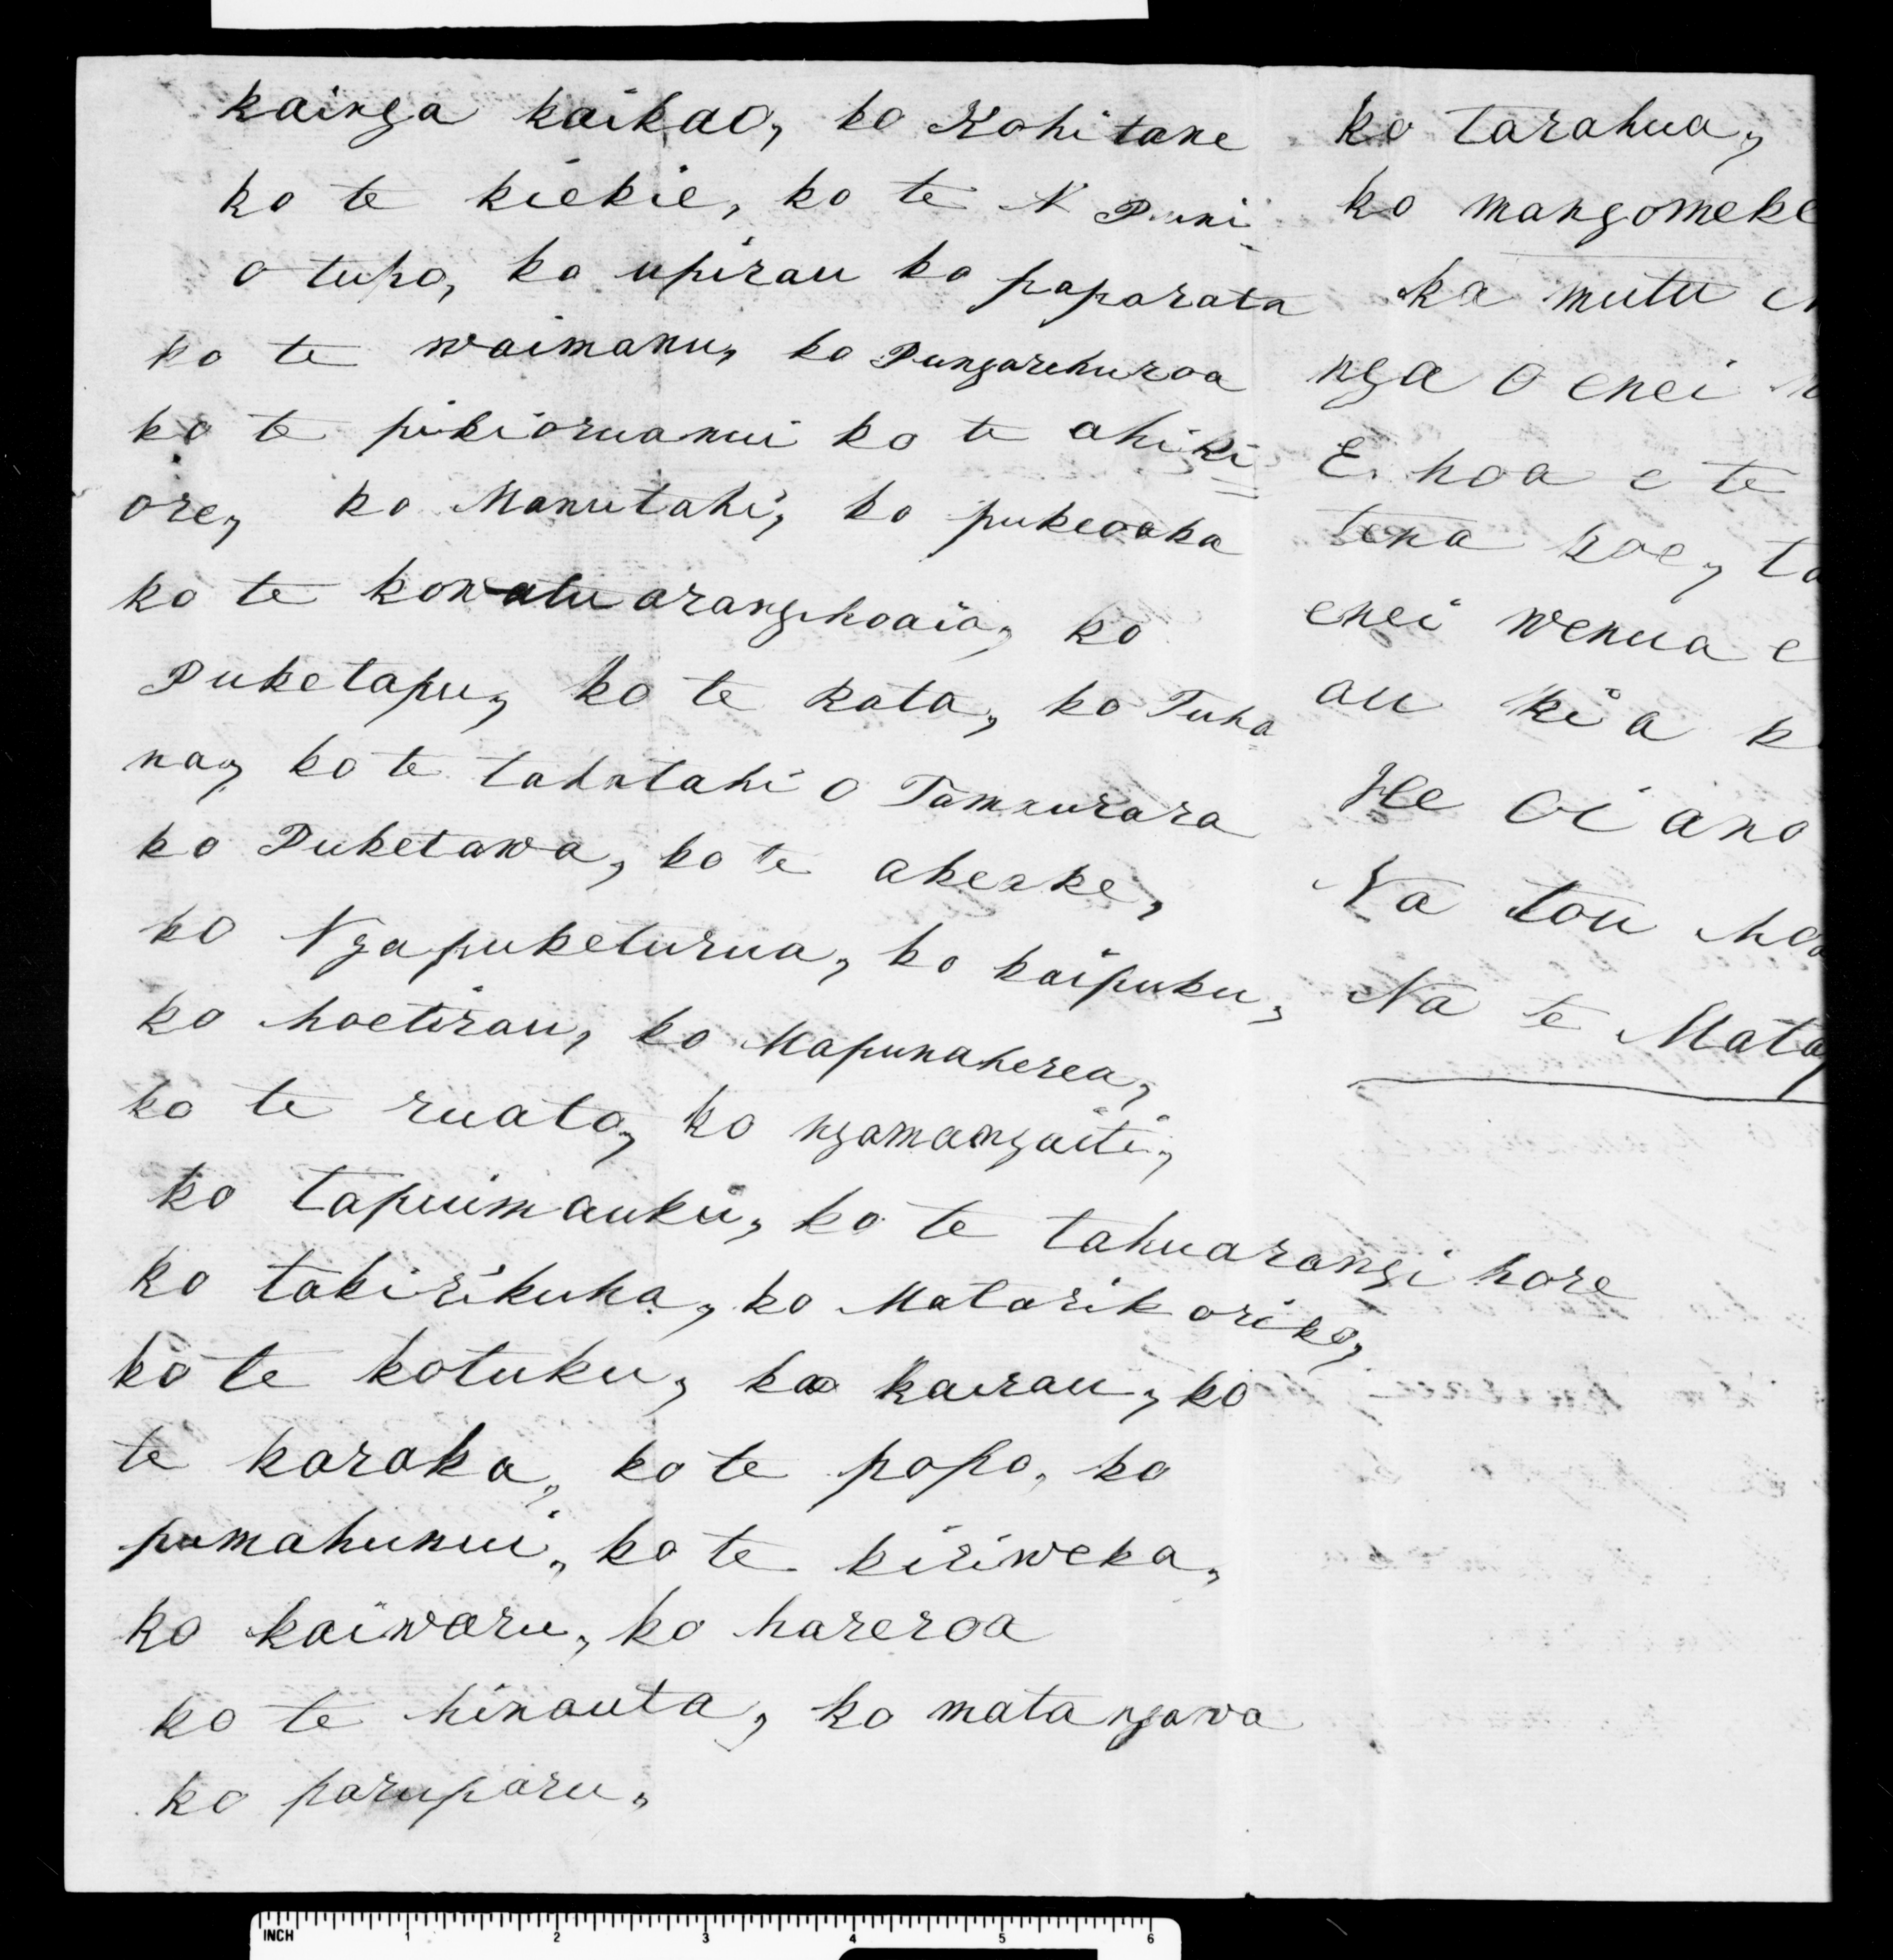 kainga kaikao, ko Kohitane
ko te kiekie, ko te N Puni
o tupo, ko upirau ko paparata
ko te waimanu, ko Pungarehuroa
ko te pikioruanui ko te ahiki=
ore, ko Manutahi, ko pukeoaka
ko te kowatuarangihoaia, ko
Puketapu, ko te Rata, ko Tuha
na, ko te tahatahi o Tamaurara
ko Puketawa, ko te akeake,
ko Ngapuketurua, ko kaipuku,
ko hoetirau, ko Mapunaherea,
ko te ruato, ko ngamangaiti,
ko tapuimauku, ko te tahuarangi hore
ko takirikuha, ko Matarikoriko,
ko te kotuku, ko kairau, ko
te karaka, ko te popo, ko
pumahunui, ko te kiriweka,
ko kaiwaru, ko hareroa
ko te hinauta, ko matangawa
ko paruparu,
ko tarahua,
ko mangomeke
ka mutu
nga o enei
E hoa e te
tena koe, ta
enei wenua e
au kia k
Heoiano
Na tou hoa
Na te Mata
INCH 1 2 3 4 5 6